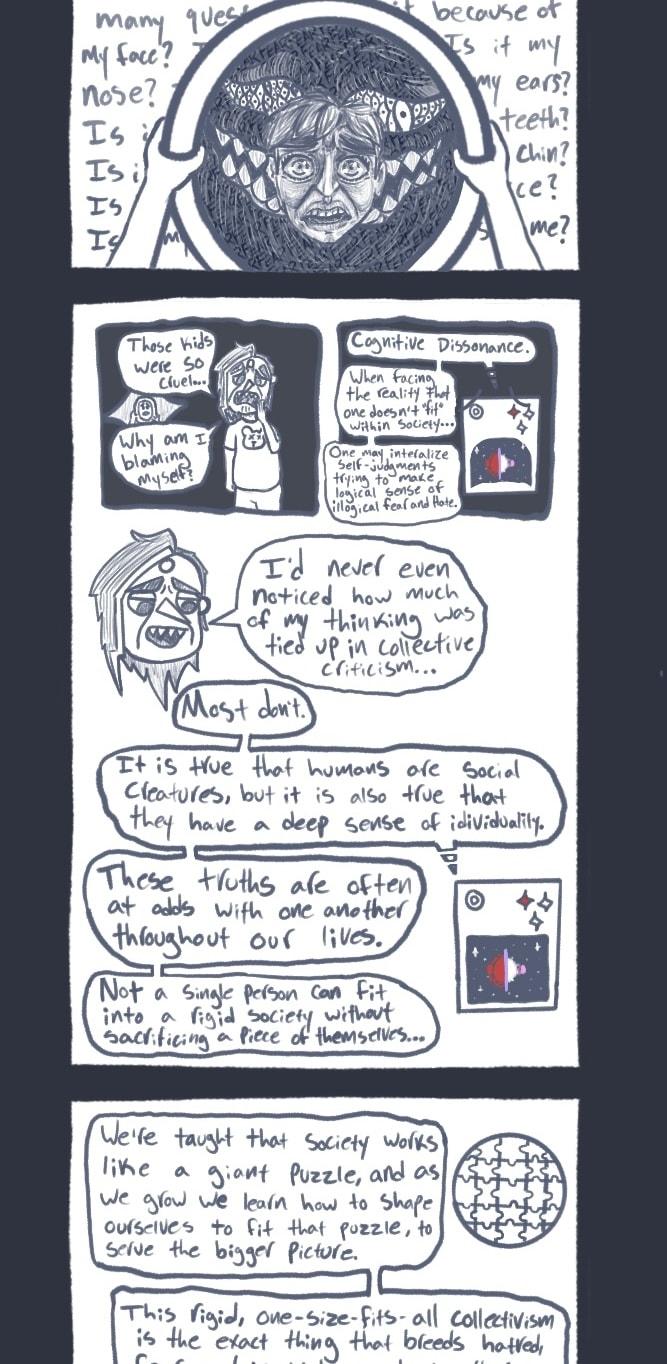 many ques it because of
My face? Is it my
nose? my ears?
Is i teeth?
Is i chin?
Is ce?
Is m s me?
Those kids
were so
cruel...
Why am I
blaming
myself?
Cognitive Dissonance.
When facing
the reality that
one doesn't "fit"
within society...
One may interalize
self-judgments
trying to make
logical sense of
illogical fear and Hate.
I'd never even
noticed how much
of my thinking was
tied up in collective
criticism...
Most don't.
It is true that humans are social
creatures, but it is also true that
they have a deep sense of idividuality.
These truths are often
at odds with one another
throughout our lives.
Not a single person can fit
into a rigid society without
sacrificing a piece of themselves...
We're taught that society works
like a giant puzzle, and as
we grow we learn how to shape
ourselves to fit that puzzle, to
serve the bigger picture.
This rigid, one-size-fits-all collectivism
is the exact thing that breeds hatred,